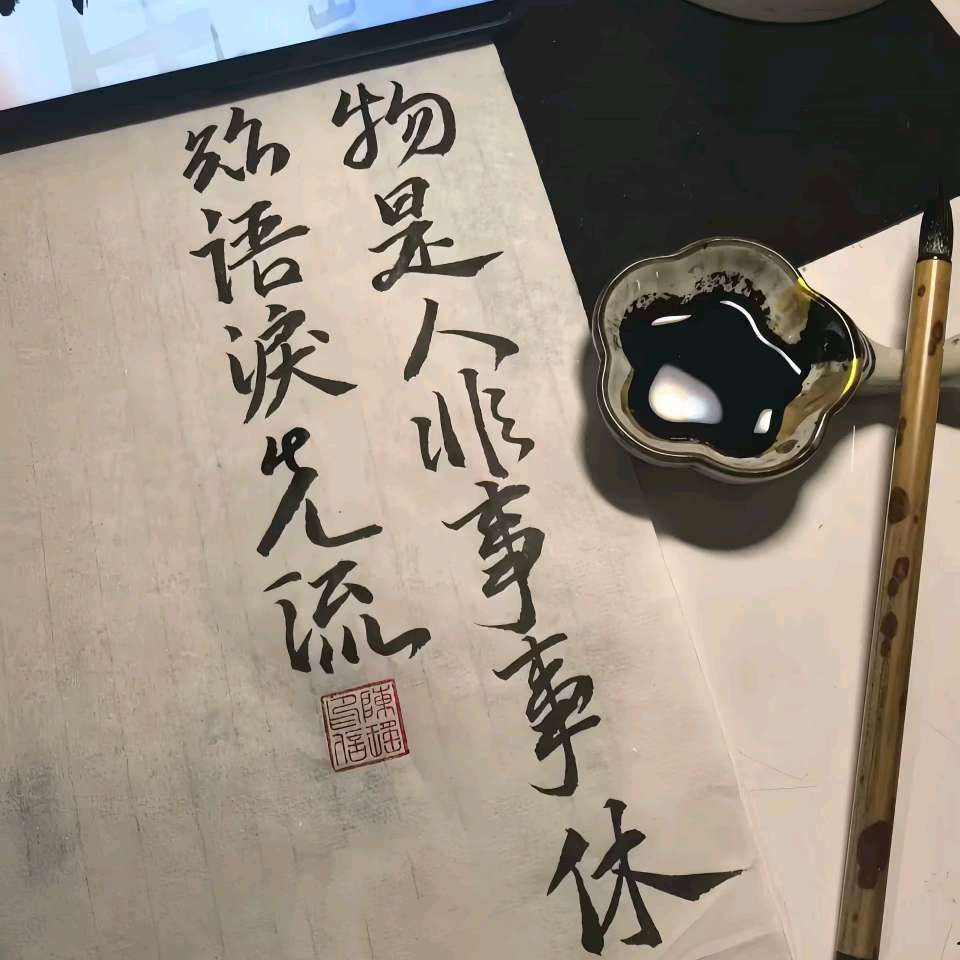 物是人非事事休
欲語淚先流
陳瑶
印信